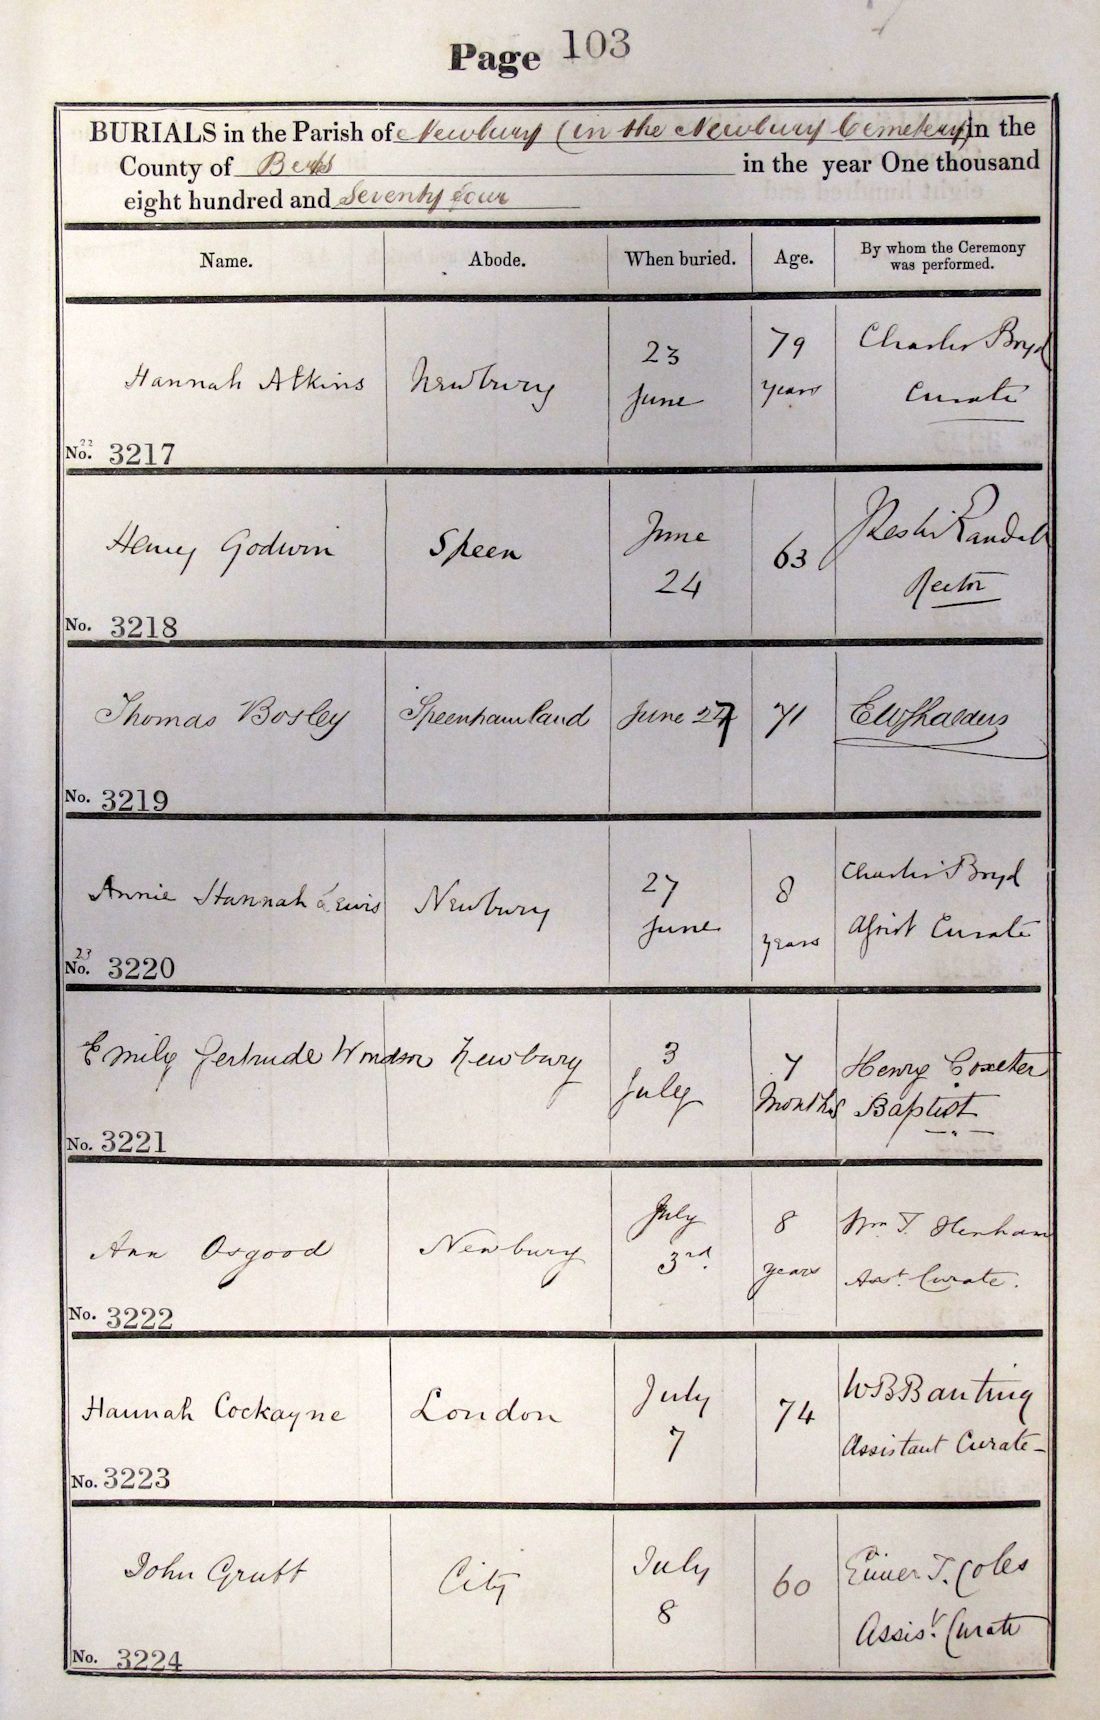 Page 103
BURIALS in the Parish of Newbury (in the Newbury Cemetery) in the
County of Berks in the year One thousand
eight hundred and Seventy four
Name. Abode. When buried. Age. By whom the Ceremony
was performed.
Hannah Atkins Newbury 23 June 79 years Charles Boyd Curate
No. 22 3217
Henry Godwin Speen June 24 63 Randall Rector
No. 3218
Thomas Bosley Speenhamland June 27 71 E W Shalders
No. 3219
Annie Hannah Lewis Newbury 27 June 8 years Charles Boyd Assist Curate
No. 23 3220
Emily Gertrude Windsor Newbury 3 July 7 Months Henry Coxeter Baptist
No. 3221
Ann Osgood Newbury July 3rd. 8 years Wm. T. Henham Asst. Curate.
No. 3222
Hannah Cockayne London July 7 74 W B Banting Assistant Curate
No. 3223
John Grubb City July 8 60 T. Coles Assist. Curate
No. 3224